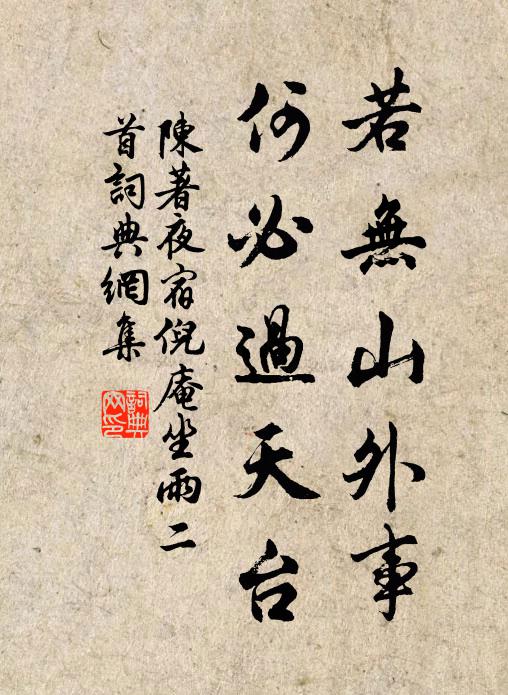 若無山外事
何必過天台
陳著夜宿倪庵坐雨二
首詞典網集
詞典
网印